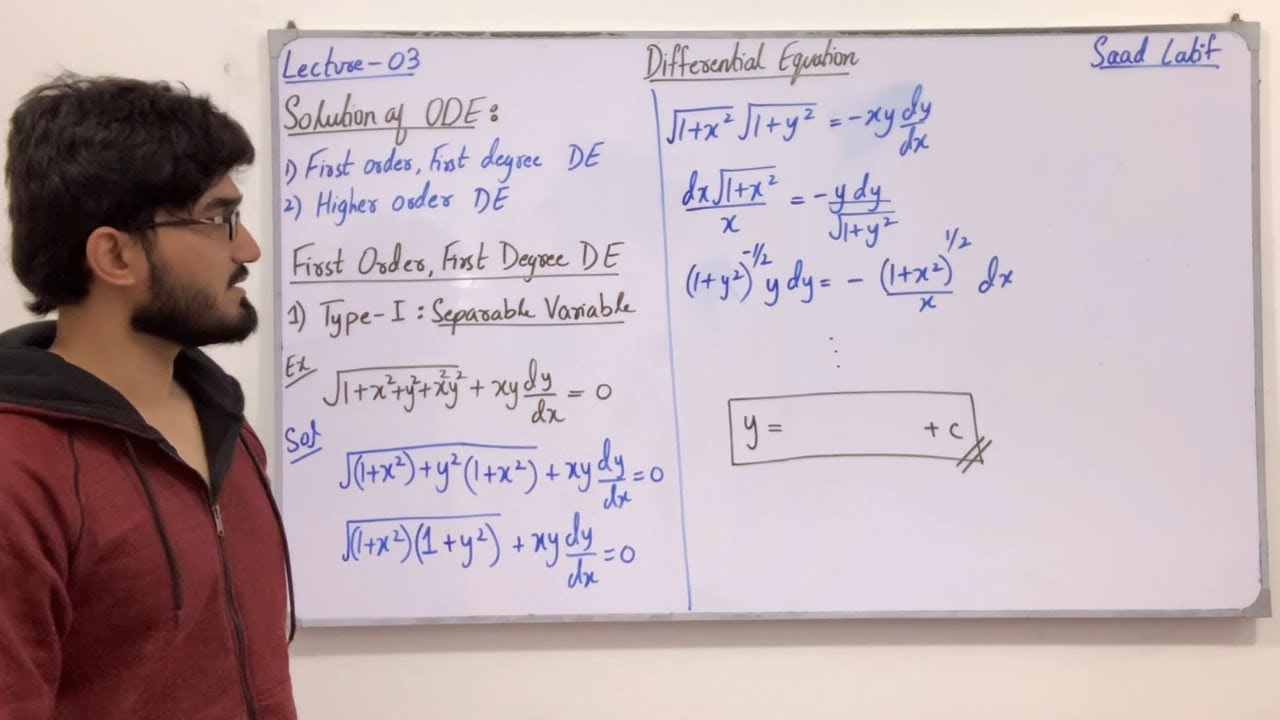 Lecture-03
Differential Equation
Saad Latif
Solution of ODE:
1) First order, First degree DE
2) Higher order DE
First Order, First Degree DE
1) Type-I: Separable Variable
Ex
√(1+x²+y²+x²y²) + xy dy/dx = 0
Sol
√((1+x²)+y²(1+x²)) + xy dy/dx = 0
√((1+x²)(1+y²)) + xy dy/dx = 0
√(1+x²) √(1+y²) = -xy dy/dx
dx√(1+x²)/x = -y dy/√(1+y²)
(1+y²)^(-1/2) y dy = - (1+x²)^(1/2)/x dx
⋮
y = + c